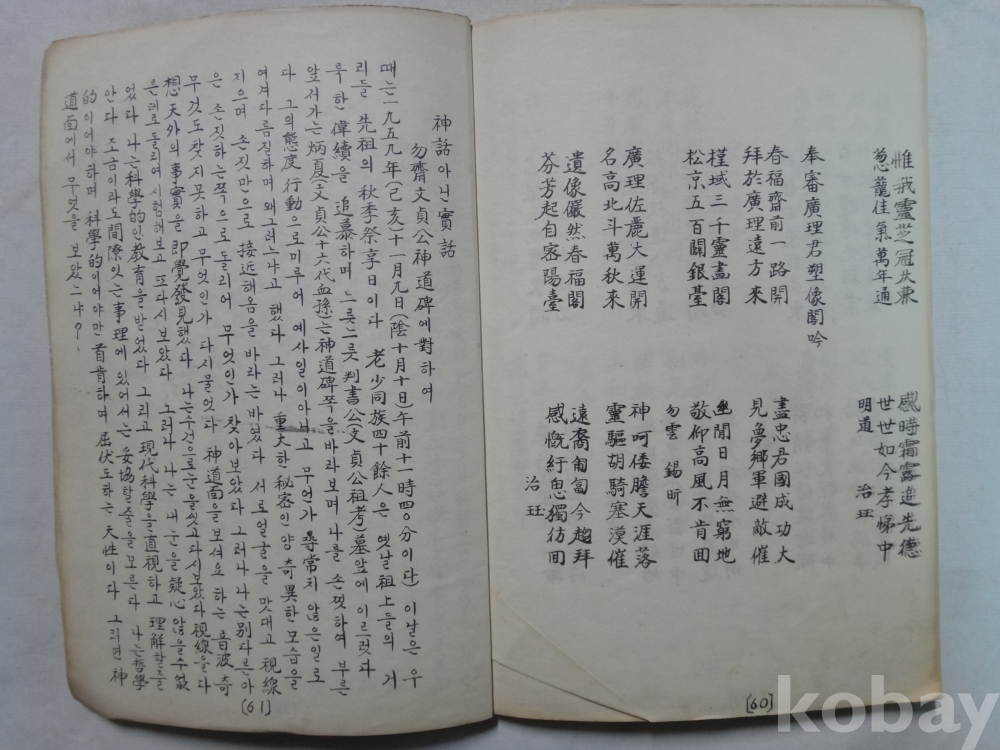 惟我靈芝冠 感時霜露追先德
葱蘢佳氣萬年通 世世如今孝悌中
明道 治珏
奉審廣理君塑像閣吟
春福齋前一路開 盡忠君國成功大
拜於廣理遠方來 見夢鄉軍避敵催
槿域三千靈畵閣 幽閒日月無窮地
松京五百開銀臺 敬仰高風不肯回
勿雲 錫昕
廣理佐麗大運開 神呵倭膽天涯落
名高北斗萬秋來 靈驅胡騎塞漠催
遺像儼然春福閣 遠裔匍匐今趨拜
芬芳起自密陽臺 感慨紆思獨彷回
治珏
[60]
神話아닌實話
勿齋文貞公神道碑에對하여
때는一九五九年(己亥)十一月九日(陰十月十日)午前十一時四０分이다) 이날은 우
리들 先祖의 秋季祭享日이다 老少同族四十餘人은 옛날祖上들의 거
룩한 偉績을 追慕하며 느릇느릇 判書公(文貞公祖考)墓앞에 이르렀다
앞서가는炳夏(文貞公十六代血孫)는神道碑쪽을바라보며 나를 손짓하여 부른
다 그의態度行動으로미루어 예사일이아니고 무언가 尋常치 않은일로
여겨다름질하며왜그러느냐고 했다 그러나 重大한秘密인양 奇異한 모습을
지으며 손짓만으로 接近해옴을 바라는바였다 서로얼굴을 맛대고 視線
은 손짓하는쪽으로돌리어 무엇인가 찾아보았다 그러나 나는別다른아
무것도찾지못하고 무엇인가 다시물었다 神道面을 보셔요 하는 音波 奇
想天外의事實을 即覺發見했다 나는수건으로눈을씻고다시보았다視線을다
른데로돌리여시험해보고 또다시보았다 그러나 나는 내눈을疑心않을수없
었다 나는科學的인敎育을받었다 그리고 現代科學을直視하고 理解할줄을
안다 조금이라도間隙잇는事理에있어서는 妥協할줄을모른다 나는哲學
的이어야하며 科學的이어야만이首肯하며 屈伏도하는 天性이다 그러면 神
道面에서 무엇을 보았느냐?
[61]
kobay